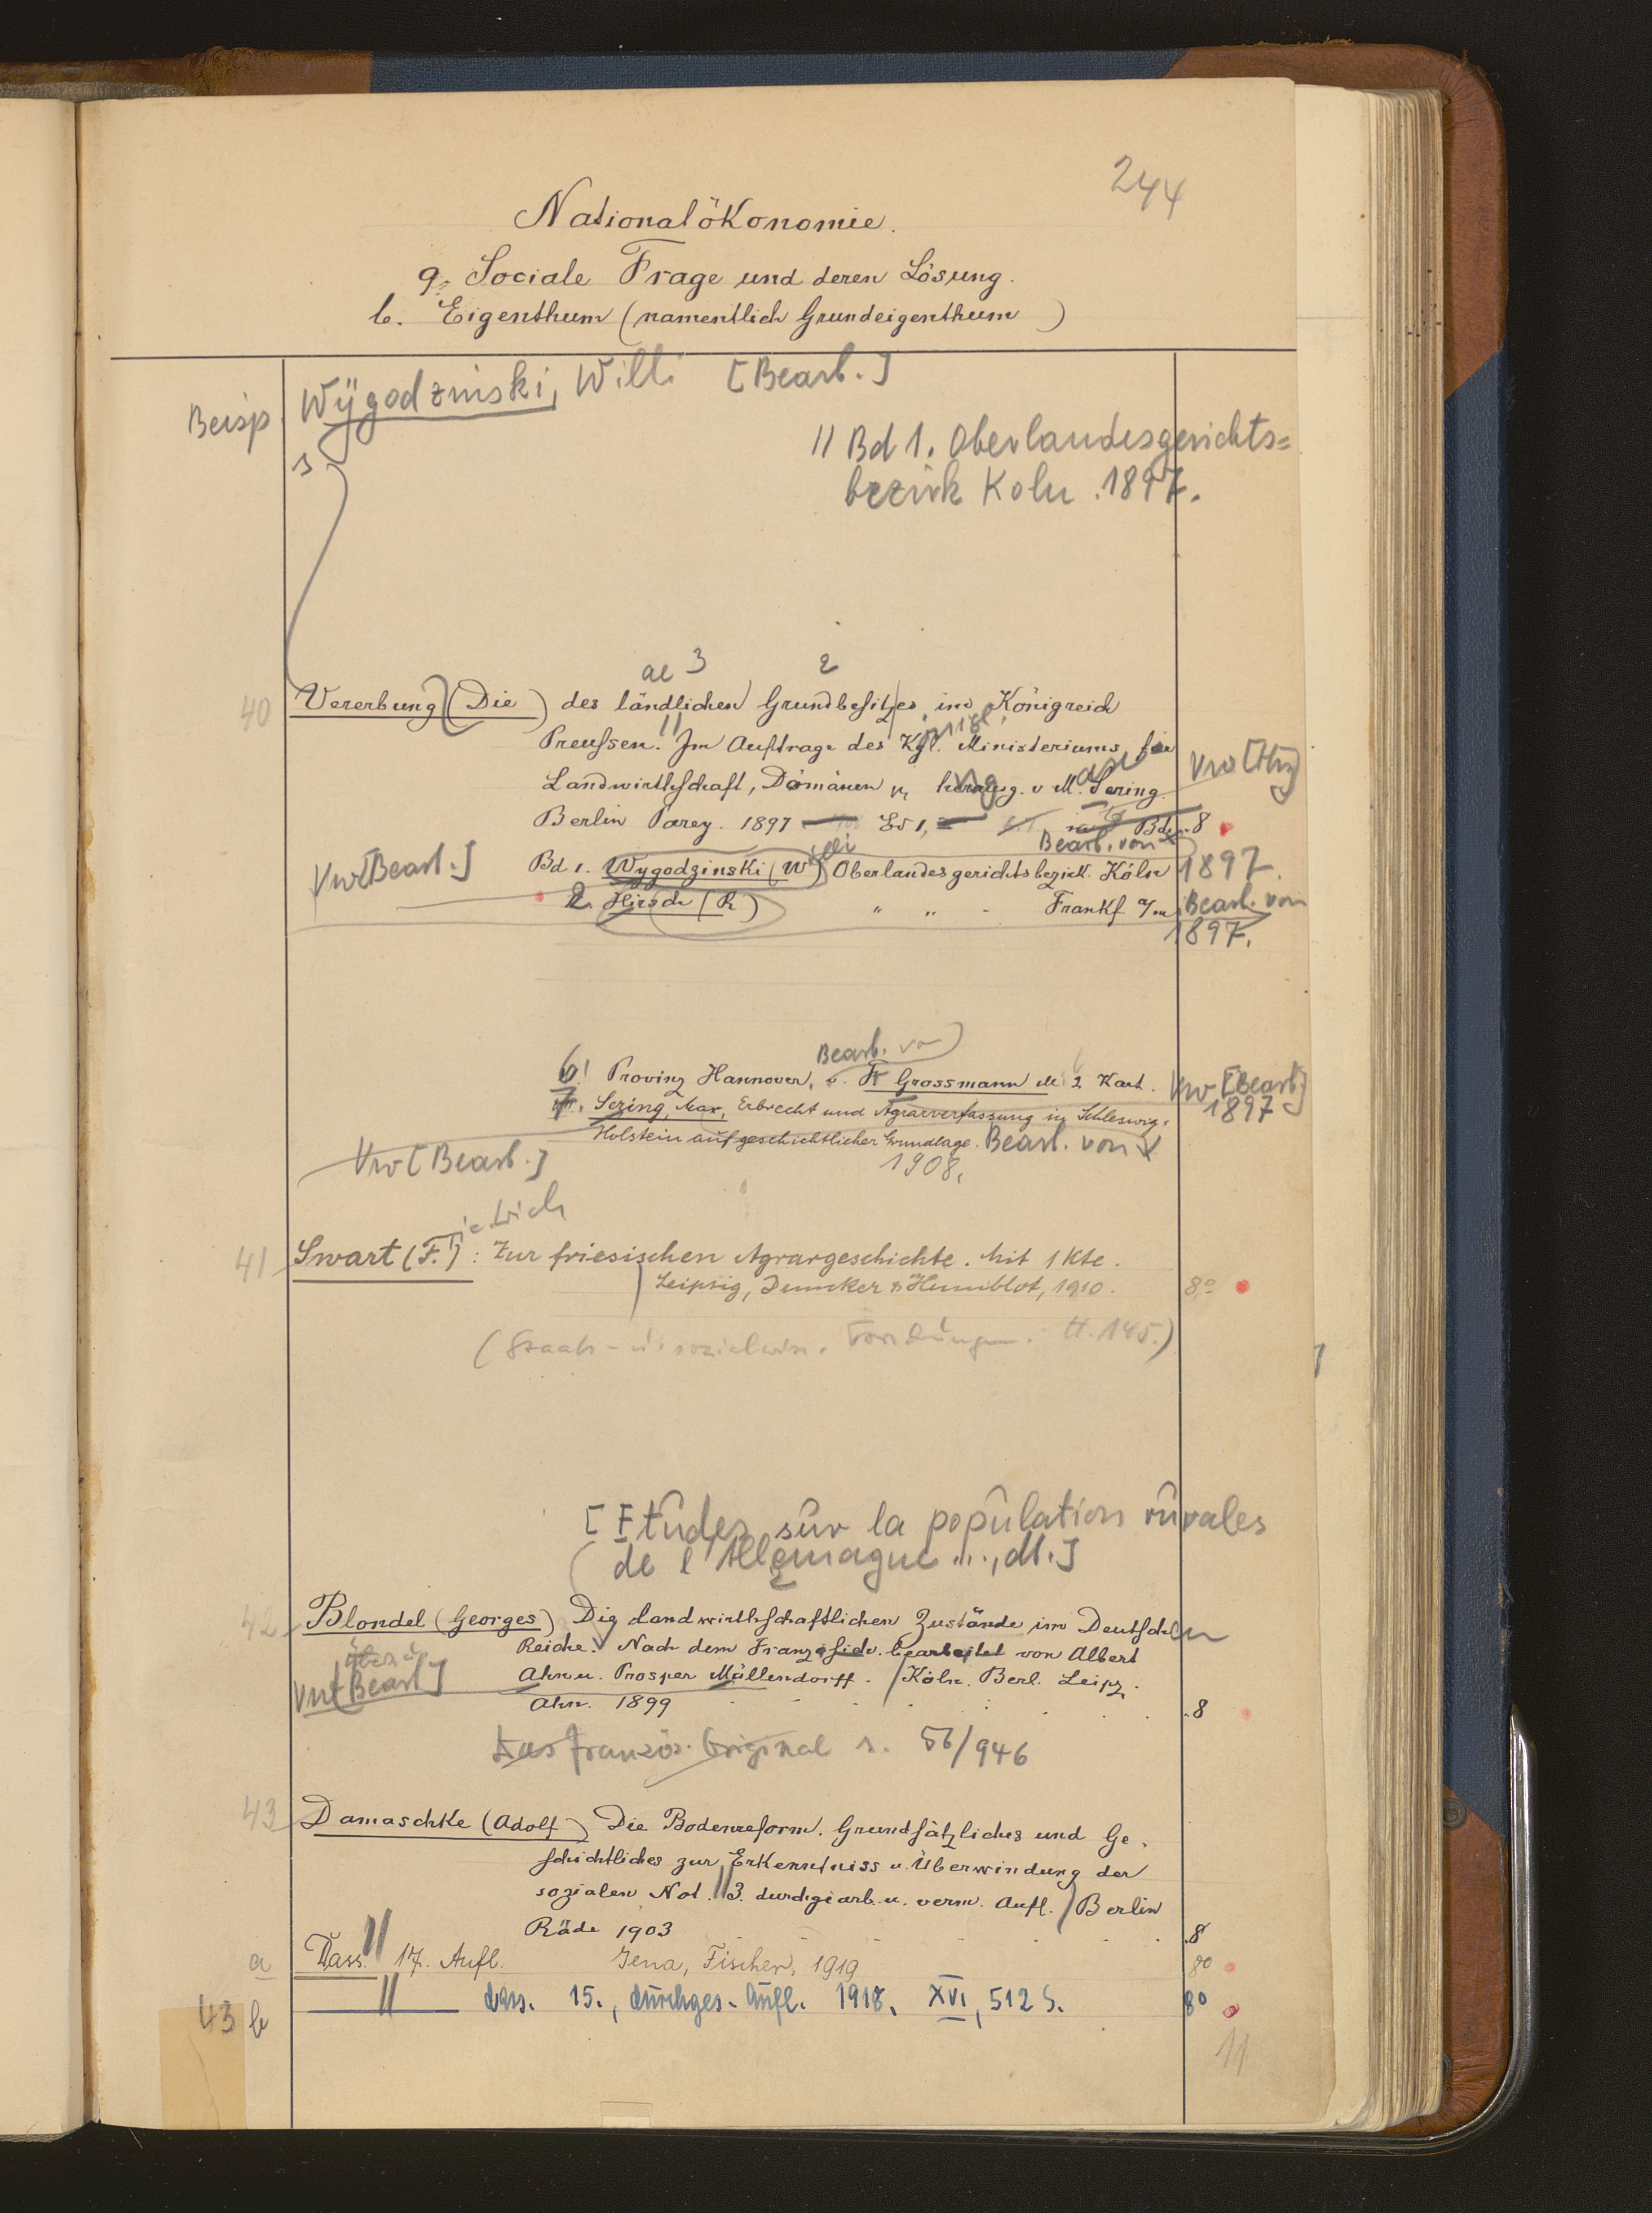 244
Nationalökonomie.
9. Sociale Frage und deren Lösung.
b. Eigenthum (namentlich Grundeigenthum)
Beisp. Wygodzinski, Willi [Bearb.]
// Bd 1. Oberlandesgerichts=
bezirk Köln. 1897.
3 2
40 Vererbung (Die) des ländlichen Grundbesitzes im Königreich
Preussen. // Im Auftrage des Kgl. Ministeriums für
Landwirthschaft, Domänen herausg. v M. Sering. Vw [Hrg]
Berlin Parey. 1897 Bd 1, Bde. 8
Bearb. von
Vw [Bearb.] Bd 1. Wygodzinski (W) Oberlandesgerichtsbezirk Köln 1897.
2. Hirsch (R) " " - Frankf a/m Bearb. von
1897.
Bearb. von
6! Provinz Hannover, v. F Grossmann M 2 Kart. Vw [Bearb.]
1897
7. Sering, Max, Erbrecht und Agrarverfassung in Schleswig-
Holstein auf geschichtlicher Grundlage. Bearb. von
Vw [Bearb.] 1908.
41 Swart (F.): Zur friesischen Agrargeschichte. Mit 1 Kte.
Leipzig, Duncker & Humblot, 1910. 8°
(Staats- u. sozialwiss. Forschungen. H. 145.)
[Etudes sur la population rurales
de l'Allemagne ..., dt.]
42 Blondel (Georges) Die landwirthschaftlichen Zustände im Deutschen
Reiche. Nach dem Französisch. bearbeitet von Albert
Vw [Bearb.] Ahn u. Prosper Müllendorff. / Köln. Berl. Leipz.
Ahn. 1899 8
Das französ. Original s. 56/946
43 Damaschke (Adolf) Die Bodenreform. Grundsätzliches und Ge-
schichtliches zur Erkenntniss u. Überwindung der
sozialen Not. // 3. durchgearb. u. verm. Aufl. / Berlin
Räde 1903 8
a Dass. // 17. Aufl. Jena, Fischer, 1919 8°
43 b // dass. 15., durchges. Aufl. 1918. XVI, 512 S. 8°
11